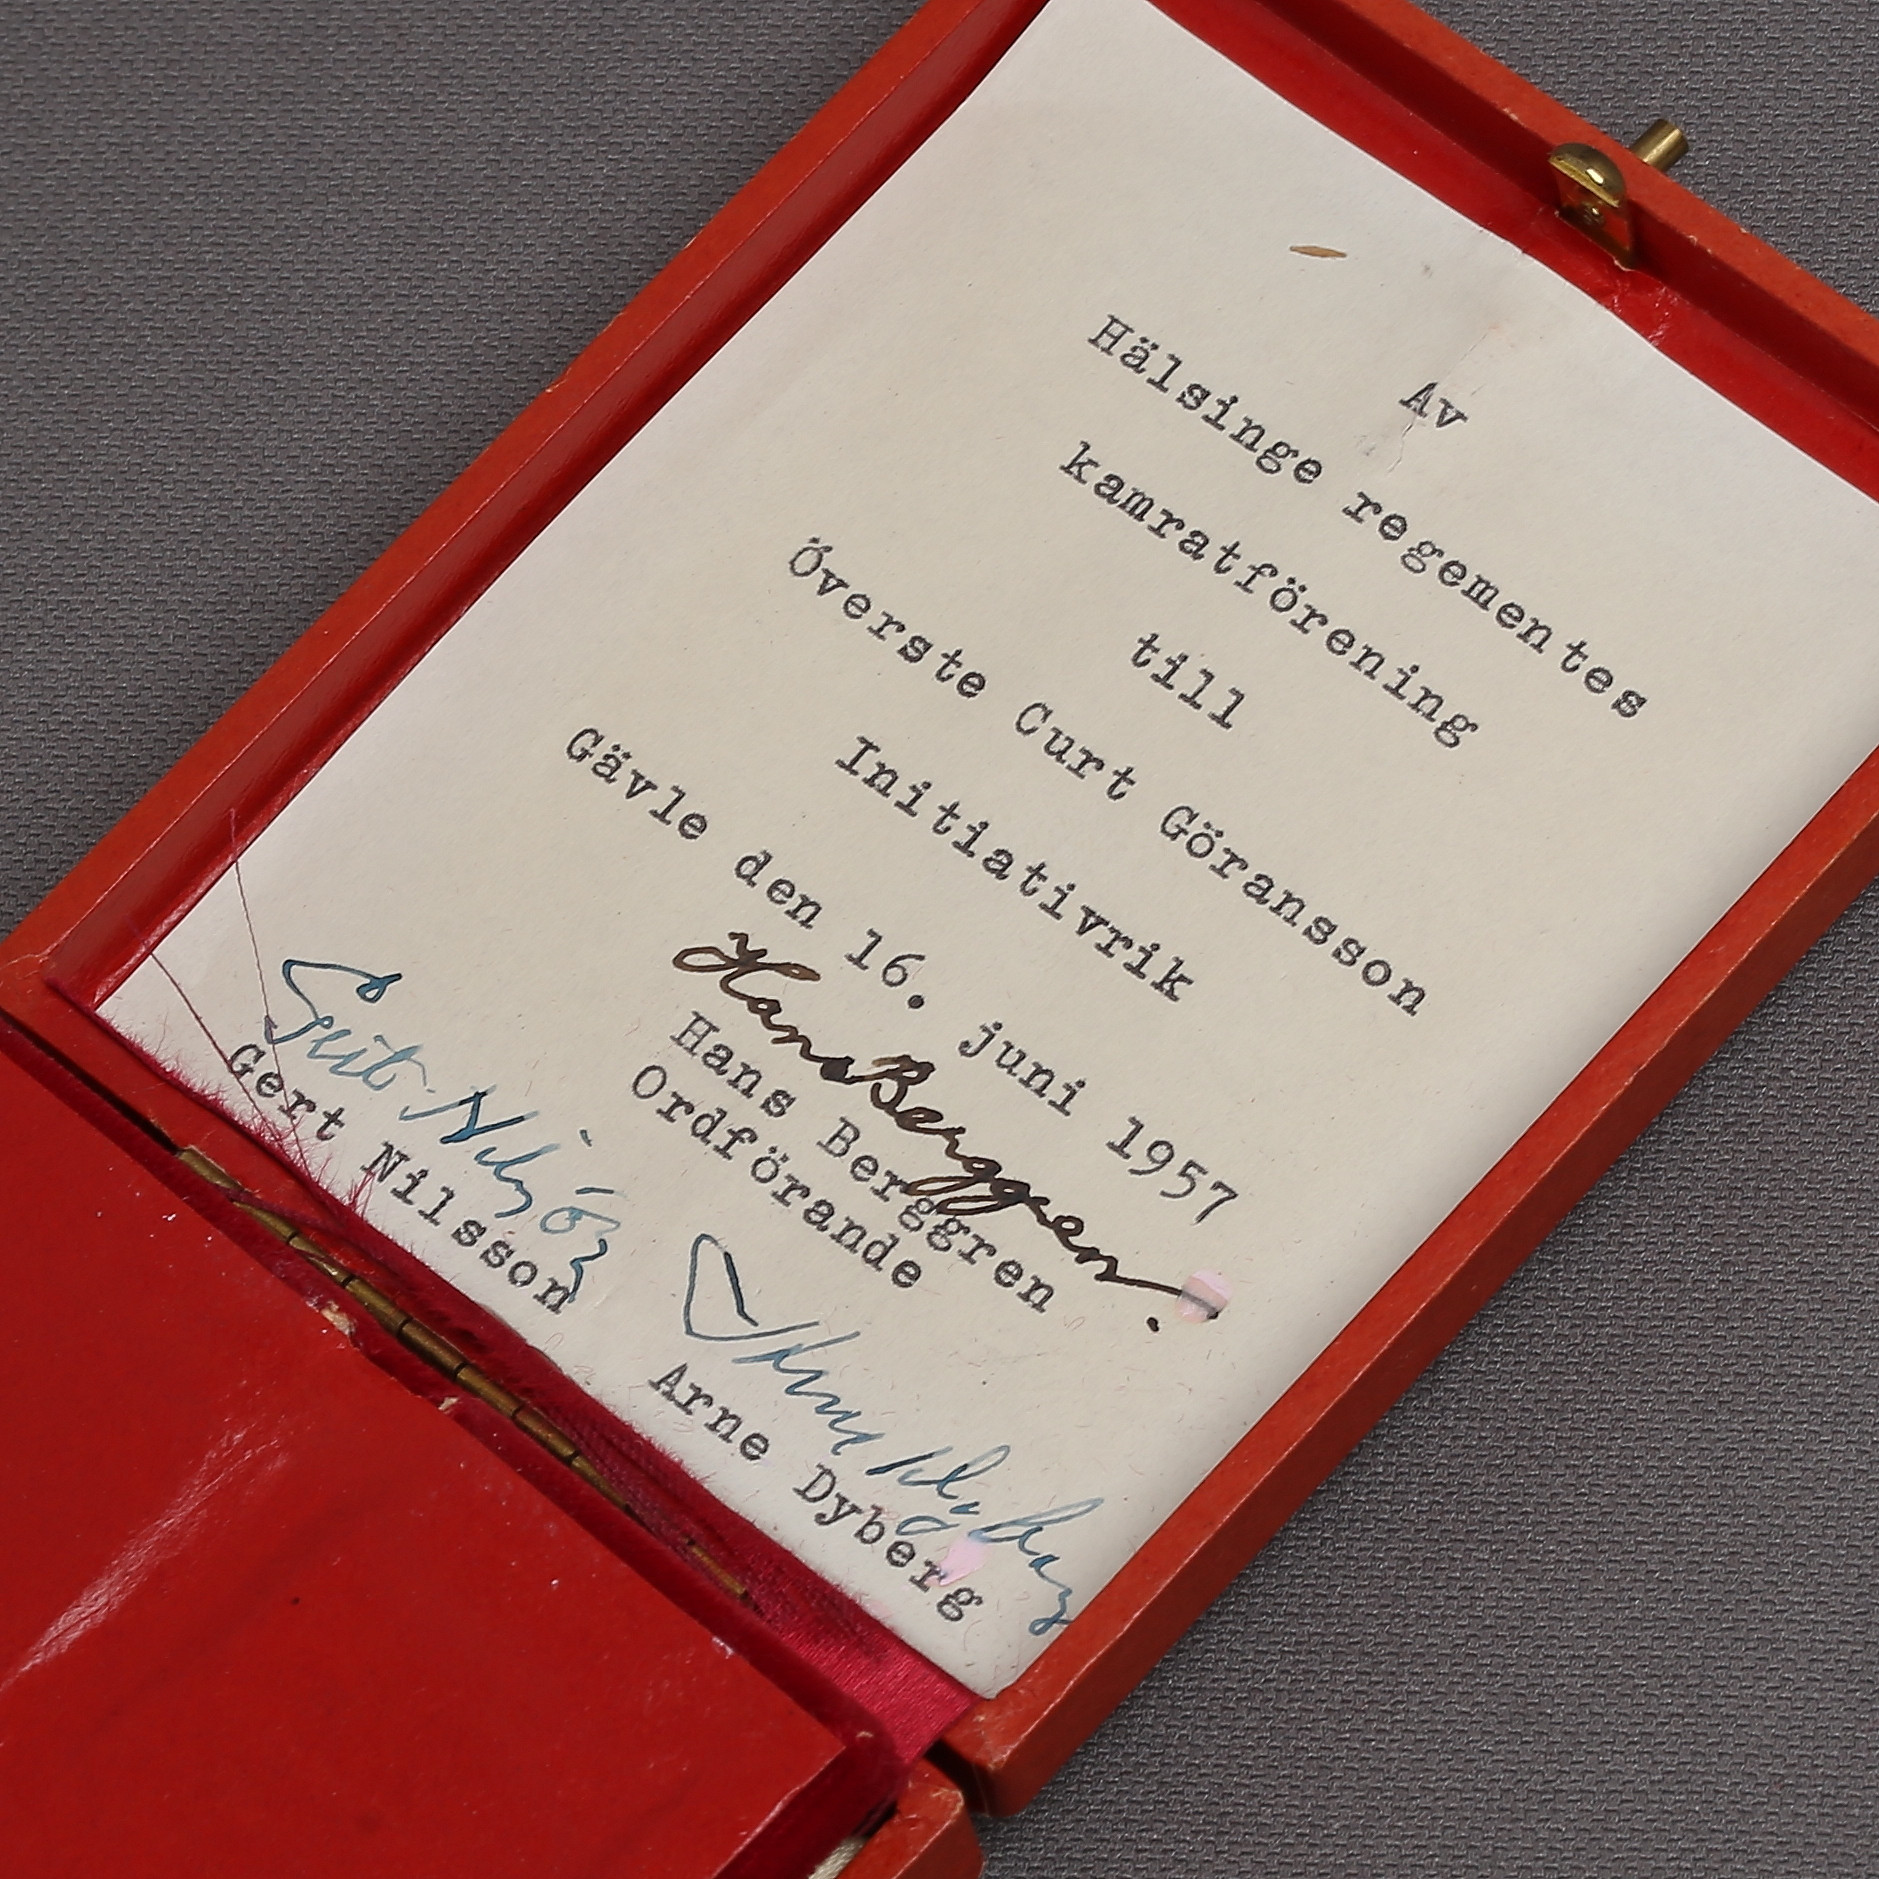 Av
Hälsinge regementes
kamratförening
till
Överste Curt Göransson
Initiativrik
Gävle den 16. juni 1957
Hans Berggren.
Hans Berggren
Ordförande
Gert Nilsson
Gert Nilsson
Arne Dyberg
Arne Dyberg